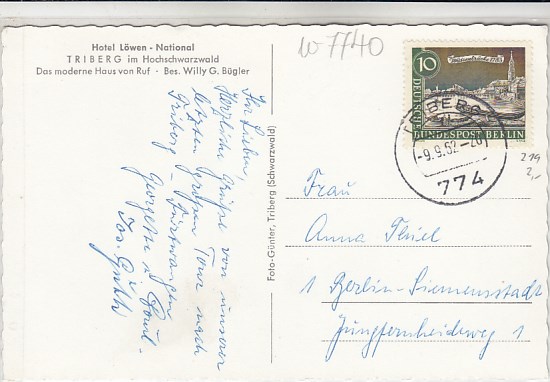 Hotel Löwen - National
TRIBERG im Hochschwarzwald
Das moderne Haus von Ruf · Bes. Willy G. Bügler
Ihr Lieben,
Herzliche Grüße von unserer
letzten großen Tour nach
Triberg - Furtwangen
Georgette u.
Jos.
Foto-Günter, Triberg (Schwarzwald)
W 7740
10
DEUTSCHE
BUNDESPOST BERLIN
TRIBERG
-9.9.62-20
774
219
2,-
Frau
Anna Thiel
1 Berlin-Siemensstadt
Jungfernheideweg 1